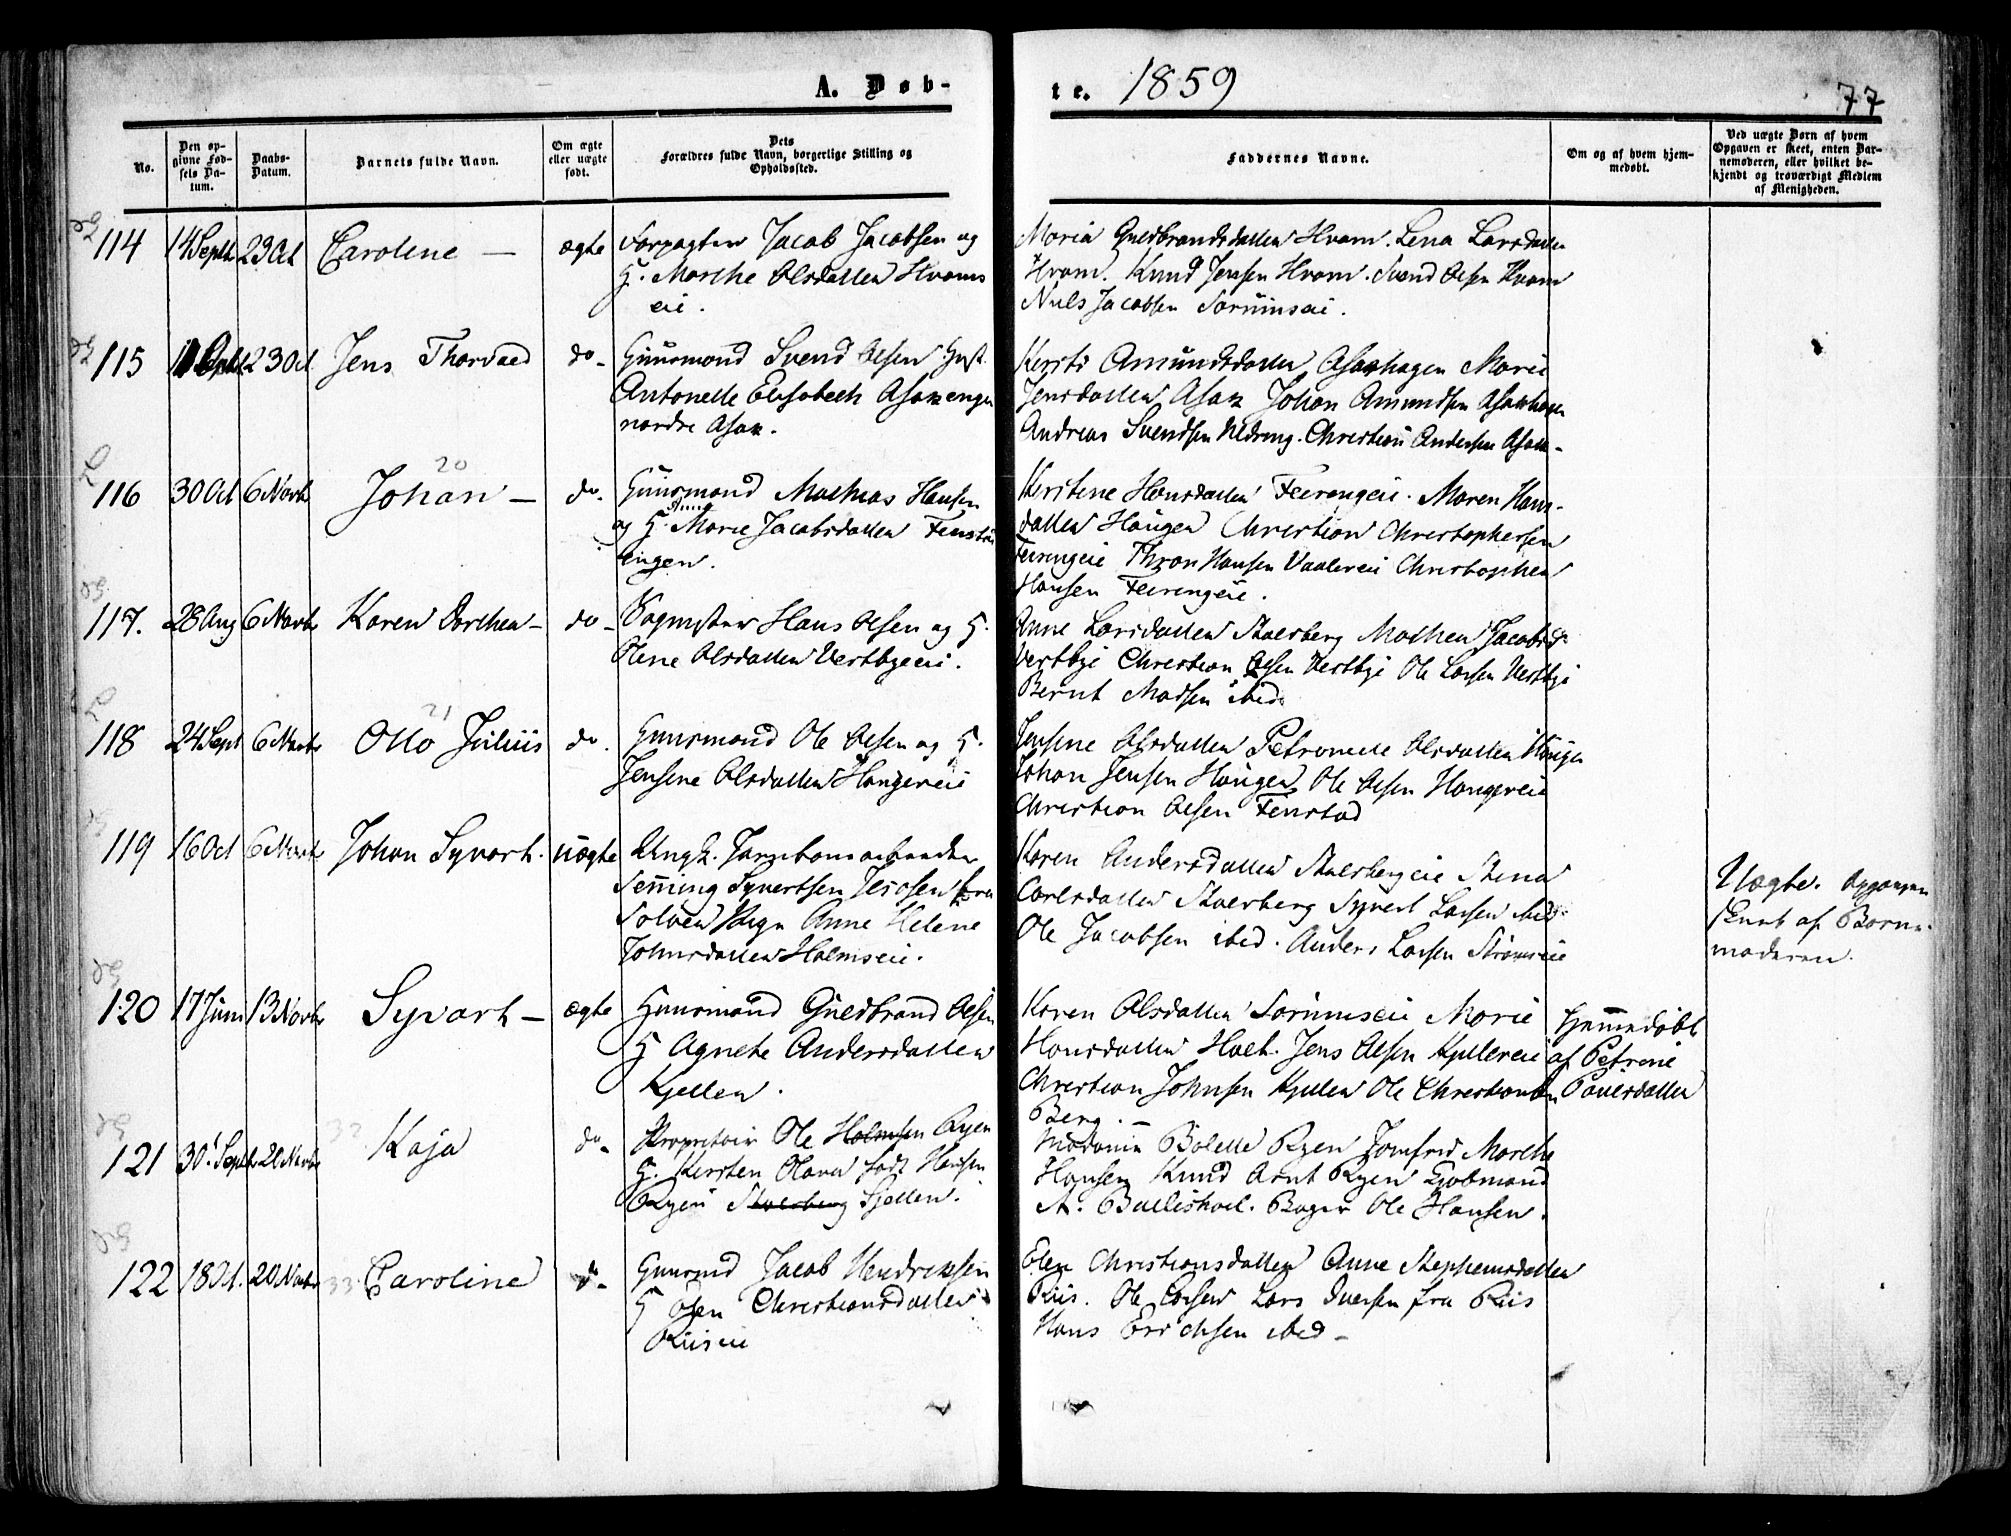 A. Døb-
te. 1859
77
No.
Den op-
givne Fød-
sels Da-
tum.
Daabs-
Datum.
Barnets fulde Navn.
Om ægte
eller uægte
født.
Dets
Forældres fulde Navn, borgerlige Stilling og
Opholdssted.
Faddernes Navne.
Om og af hvem hjem-
medøbt.
Ved uægte Børn af hvem
Opgaven er skeet, enten Bar-
nemoderen, eller hvilket be-
kjendt og troværdigt Medlem
af Menigheden.
114 14 Septb 23 Oct Caroline — ægte Forpagter Jacob Jacobsen og
H. Marthe Olsdatten Hvams
eie.
Maria Guldbrandsdatten Hvam. Lena Larsdatten
Hvam. Knud Jensen Hvam. Svend Olsen Hvam
Niels Jacobsen Sørumseie.
115 23 Oct Jens Thorvald do- Guursmand Svend Olsen Hust.
Antonette Elisabeth Asakengen
nordre Asak.
Kersti Amundsdatten Asakhagen Marie
Jensdatten Asak Johan Amundsen Asakhagen
Andreas Svendsen Christian Andersen Asak-
116 30 Oct 6 Novb Johan — 20 do. Guursmand Mathias Hansen
og H. Anne Marie Jacobsdatten
engen.
Kirstine Hansdatten Feiringeie. Maren Hans-
datten Haugen Christian Christophersen
Feiringeie Thron Hansen Vaalereie Christopher
Hansen Feiringeie.
117. 28 Aug 6 Novbr Karen Dorthea — do- Sagmester Hans Olsen og H.
Olene Olsdatten Vestbyeie.
Anne Larsdatten Skaeberg Mathea Jacobsd.
Vestbye Christian Olsen Vestbye Ole Larsen Vestbye
Bernt Madsen ibid.
118 24 Sept 6 Novbr Otto Juliis 21 do. Guursmand Ole Olsen og H.
Jensene Olsdatten Haugereie
Jensine Olsdatten Petronelle Olsdatten Haugen
Johan Jensen Haugen Ole Olsen Haugereie
Christian Olsen Fenstad
119 16 Oct 6 Novbr Johan Syvart. uægte Ungk. Jernbanearbeider
Syvertsen fra
Soløen Pige Anne Helene
Johnsdatten Holmseie.
Karen Andersdatten Skaebergeie Stena
Carlsdatten Skaeberg Syvert Larsen ibid-
Ole Jacobsen ibid. Anders Larsen Strømseie
Uægte. Opgaven
skeet af Barne-
moderen.
120 17 Juni 13 Novbr Syvart — ægte Guursmand Guldbrand Olsen
H Agnete Andersdatten
Kjellen.
Karen Olsdatten Sørumseie Marie
Hansdatten Holt. Jens Olsen Kjellereie
Christian Johnsen Kjellen Ole Christiansen
Berg. —
Hjemmedøbt
af Petrine
Paulsdatten
121 30 Septbr 20 Novbr Kaja 32 do- Proprietair Ole Holmsen Ryen
H. Kirsten Olava født Hansen
Ryen Skaeberg Fjellen.
Madame Bolette Ryen Jomfru Marthe
Hansen Knud Arnt Ryen Kjøbmand
A. Bulleshoel. Bager Ole Hansen.
122 18 Oct. 20 Novbr 33 Caroline do- Guursmd Jacob Hendriksen
H Olea Christiansdatten
Riiseie
Elen Christiansdatten Anne Stephensdatten
Riis. Ole Larsen Lars Iversen fra Riis
Hans Erichsen ibid —